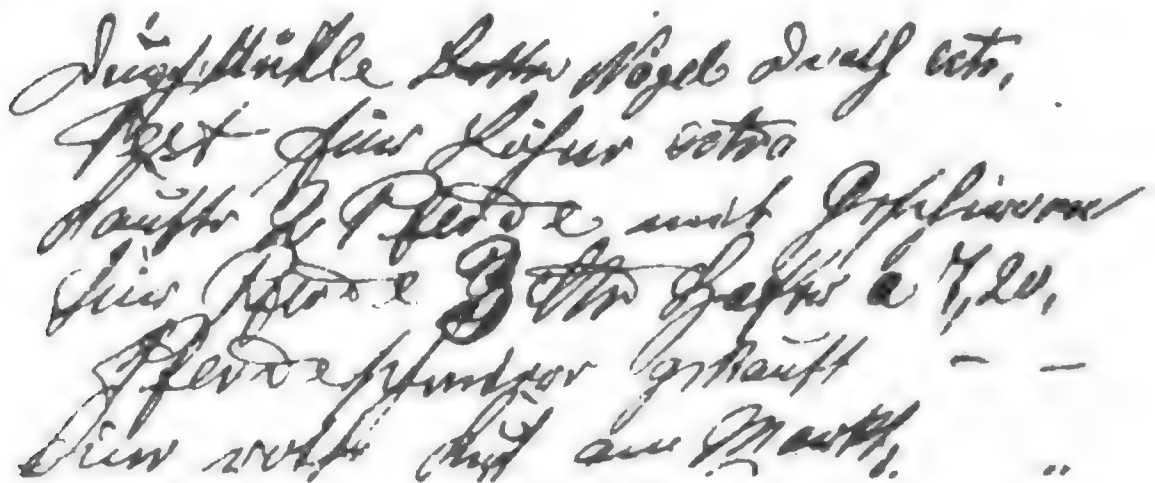 Stühle Betten Nägel Draht etr,
Rest für Löhne extra
Kaufte 2 Pferde mit Geschirren
für Pferde 3 Ctr Hafer a 7,20,
Pferde gekauft - -
Eine rothe Kuh am Markt, "